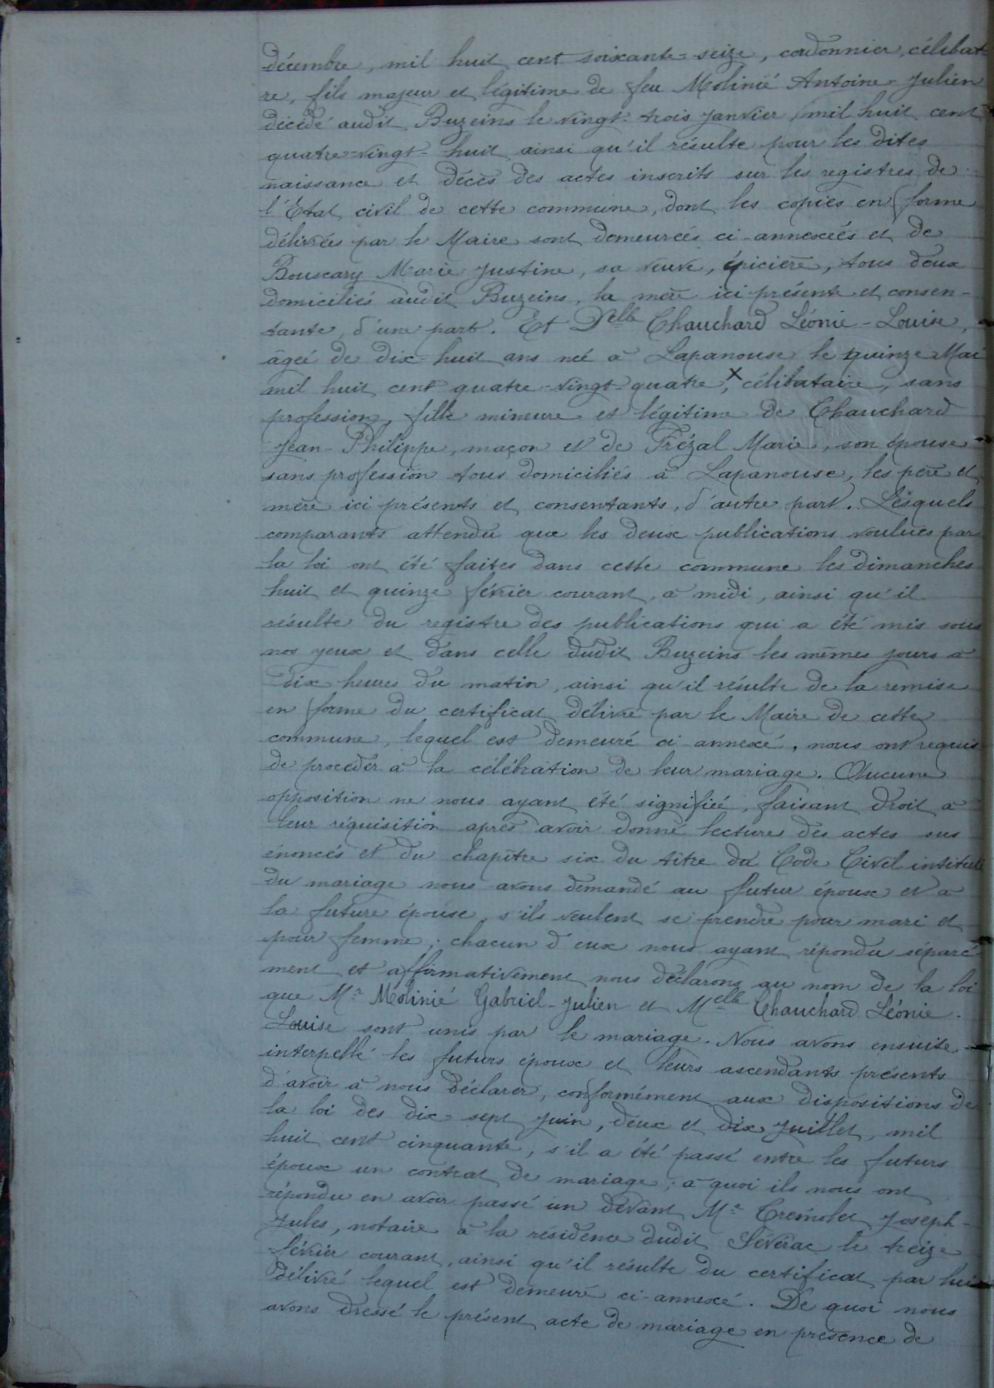 décembre, mil huit cent soixante-seize, cordonnier, célibat
re, fils majeur et légitime de feu Molinié Antoine-Julien
décédé audit Buzeins le vingt-trois janvier, mil huit cent
quatre-vingt-huit ainsi qu'il résulte pour les dites
naissance et décès des actes inscrits sur les registres de
l'Etat civil de cette commune, dont les copies en forme
délivrées par le Maire sont demeurées ci-annexées et de
Bouscary Marie Justine, sa veuve, épicière, tous deux
domiciliés audit Buzeins, la mère ici présente et consen-
tante, d'une part. Et Delle Chauchard Léonie-Louise,
âgée de dix-huit ans né à Lapanouse le quinze Mai
mil huit cent quatre-vingt-quatre, x célibataire, sans
profession, fille mineure et légitime de Chauchard
Jean-Philippe, maçon et de Frézal Marie, son épouse
sans profession tous domiciliés à Lapanouse, les père et
mère ici présents et consentants, d'autre part. Lesquels
comparants attendu que les deux publications voulues par
la loi ont été faites dans cette commune les dimanches
huit et quinze février courant, à midi, ainsi qu'il
résulte du registre des publications qui a été mis sous
nos yeux et dans celle dudit Buzeins les mêmes jours à
dix heures du matin, ainsi qu'il résulte de la remise
en forme du certificat délivré par le Maire de cette
commune, lequel est demeuré ci annexé, nous ont requis
de procéder à la célébration de leur mariage. Aucune
opposition ne nous ayant été signifiée, faisant droit à
leur réquisition après avoir donné lecture des actes sus
énoncés et du chapitre six du titre du Code Civil intitulé
du mariage nous avons demandé au futur époux et à
la future épouse, s'ils veulent se prendre pour mari et
pour femme; chacun d'eux nous ayant répondu séparé
ment et affirmativement nous déclarons au nom de la loi
que Mr Molinié Gabriel-Julien et Melle Chauchard Léonie-
Louise sont unis par le mariage. Nous avons ensuite
interpellé les futurs époux et leurs ascendants présents
d'avoir à nous déclarer, conformément aux dispositions de
la loi des dix-sept juin, deux et dix Juillet, mil
huit cent cinquante, s'il a été passé entre les futurs
époux un contrat de mariage; à quoi ils nous ont
répondu en avoir passé un devant Mr Cremolet Joseph-
Jules, notaire à la résidence dudit Sévérac le treize
février courant, ainsi qu'il résulte du certificat par lui
délivré lequel est demeuré ci-annexé. De quoi nous
avons dressé le présent acte de mariage en présence de